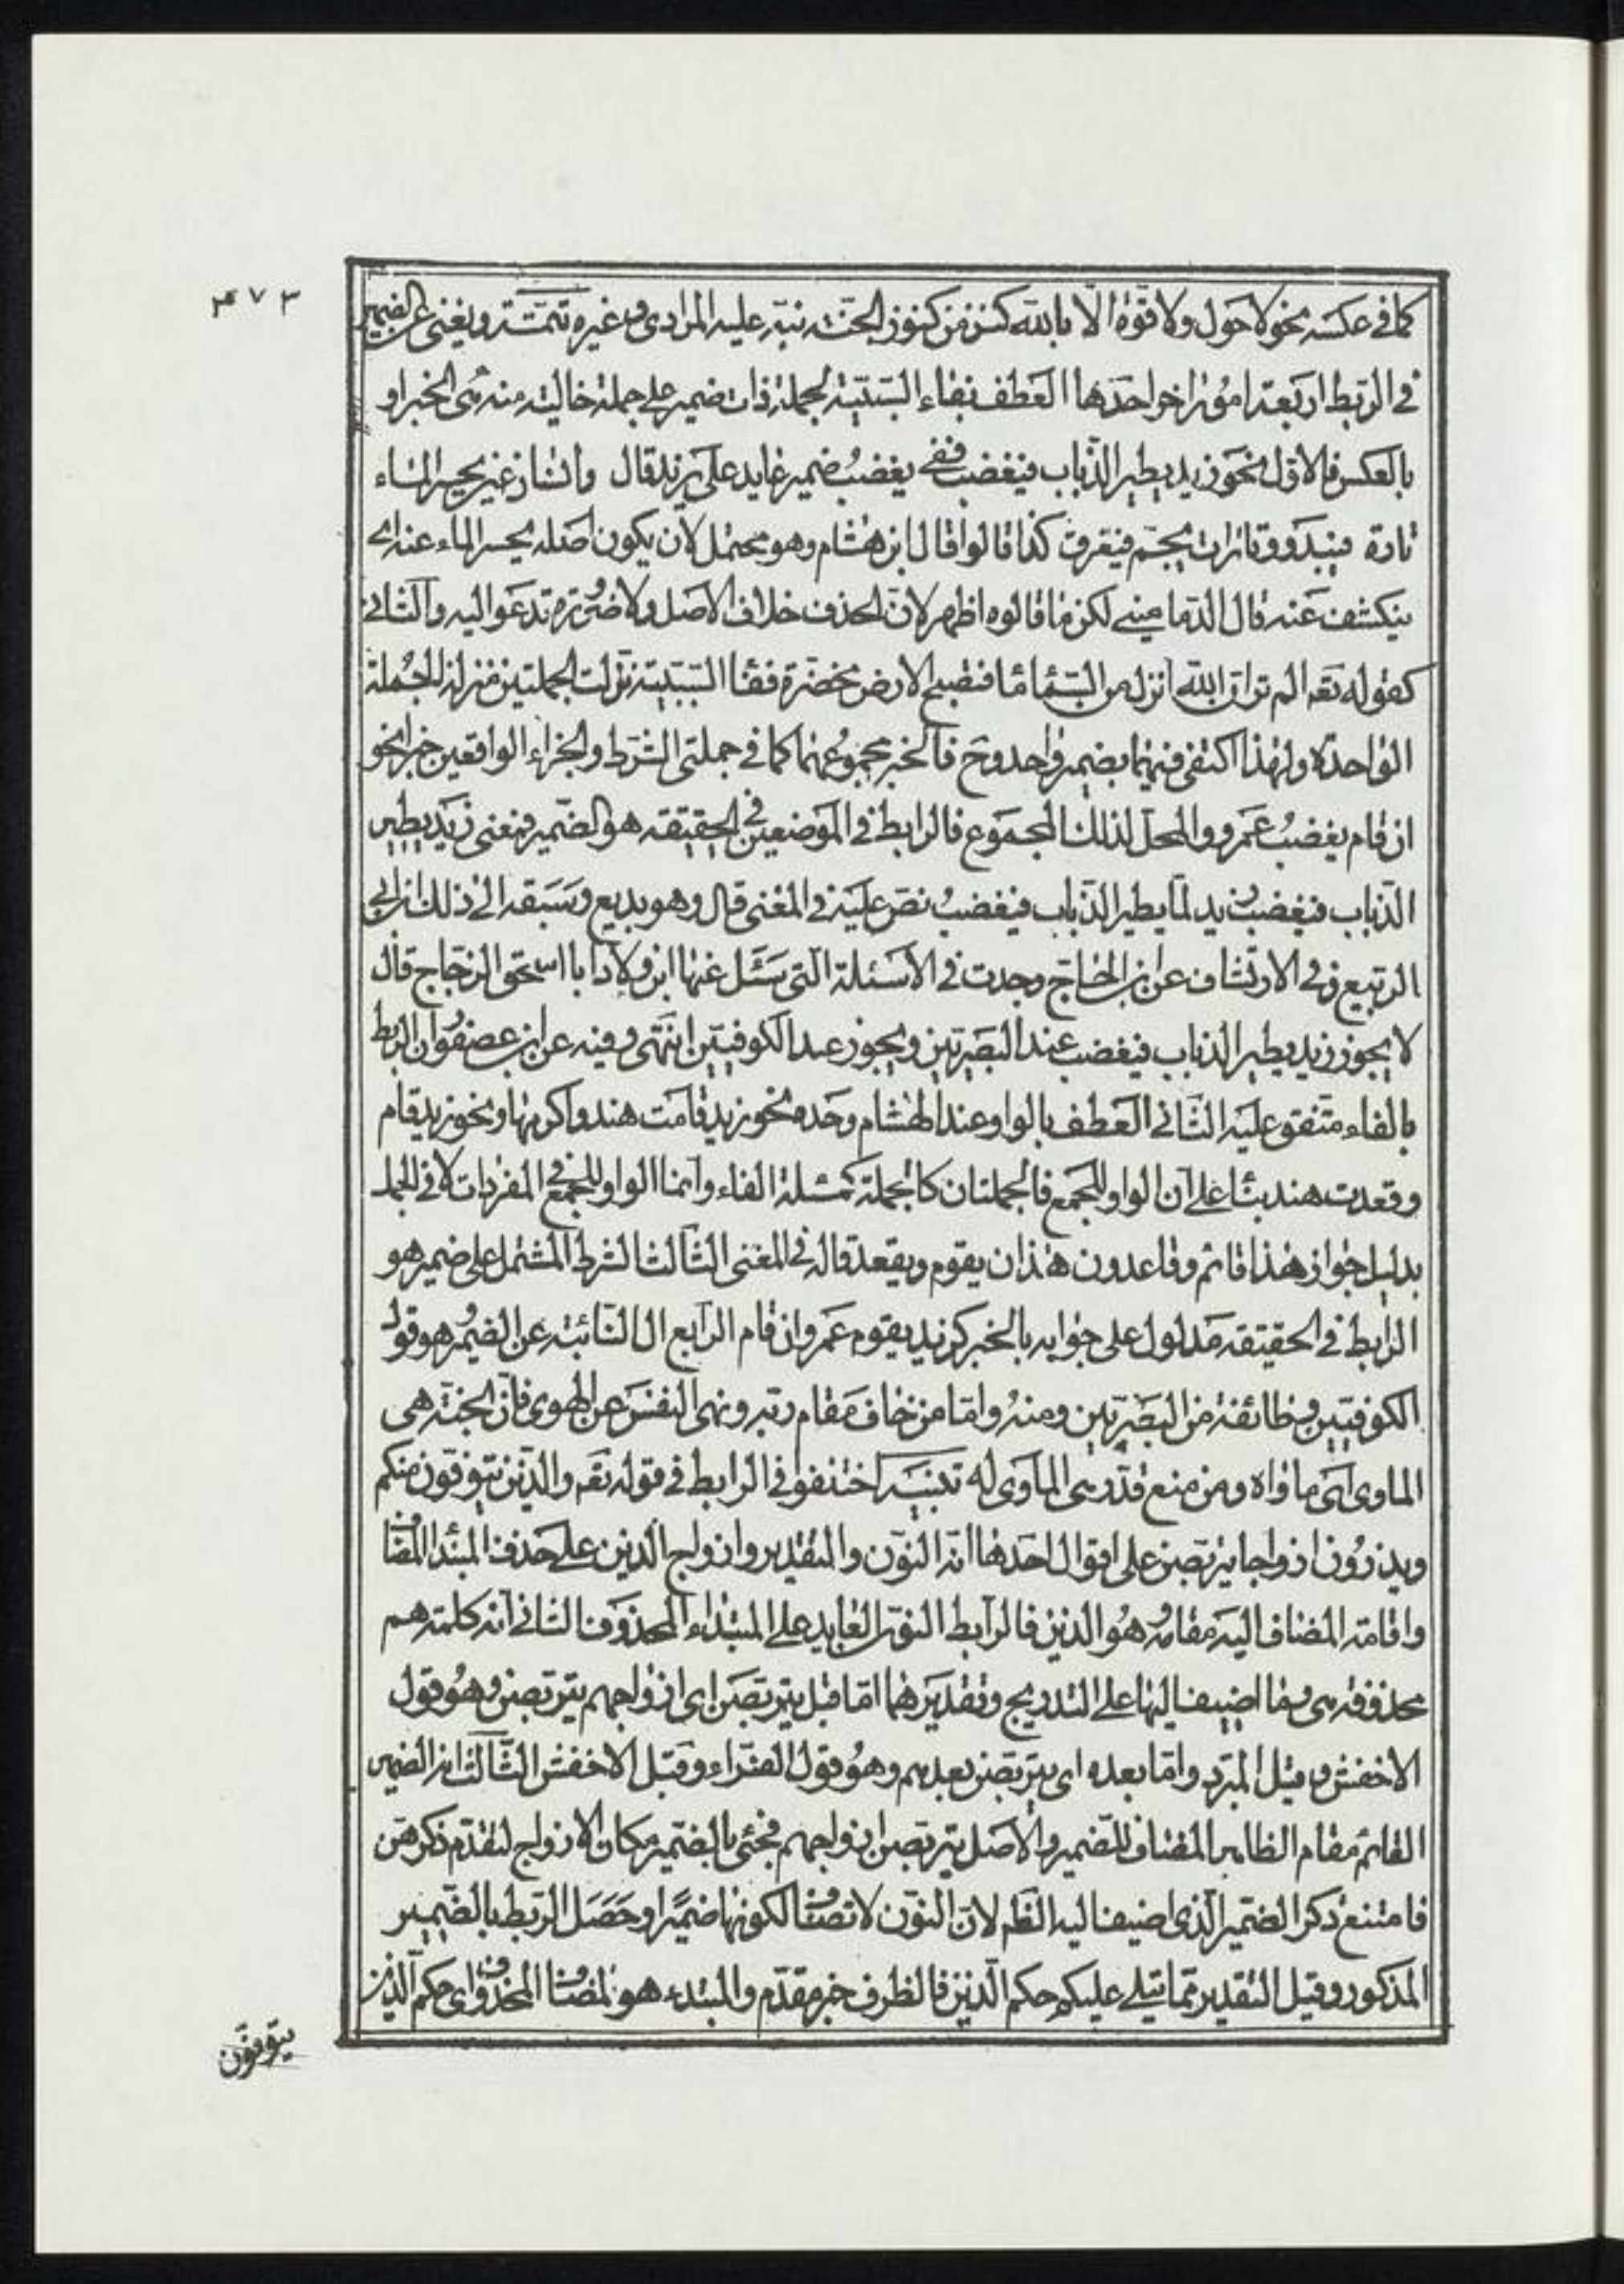 ٤٧٣
كما في عكسه نحو لا حول ولا قوة الا بالله كنز من كنوز الجنة نبه عليه المرادى وغيره تتمة ويغني عن الضمير
في الربط اربعة امور اخر احدها العطف بفاء السببية لجملة ذات ضمير على جملة خالية منه هى الخبر او
بالعكس فالاول نحو زيد يطير الذباب فيغضب ففي يغضب ضمير عايد على زيد قال وانسان عيني يحسر الماء
تارة فيبدو وتارات يجم فيغرق كذا قالوا قال ابن هشام وهو محتمل لان يكون اصله يحسر الماء عنه اى
ينكشف عنه قال الدماميني لكن ما قالوه اظهر لان الحذف خلاف الاصل ولا ضرورة تدعو اليه والثاني
كقوله تعه الم تر ان الله انزل من السماء ماء فتصبح الارض مخضرة ففاء السببية نزلت الجملتين منزلة الجملة
الواحدة ولهذا اكتفى فيهما بضمير واحد وح فالخبر مجموعهما كما في جملتى الشرط والجزاء الواقعين خبرا نحو
ان قام يغضب عمرو والمحل لذلك المجموع فالرابط في الموضعين في الحقيقة هو الضمير فمعنى زيد يطير
الذباب فيغضب زيد لما يطير الذباب فيغضب نص عليه في المغني قال وهو بديع وسبقه الى ذلك ابن ابى
الربيع وفي الارتشاف عن ابن الحاج وجدت في الاسئلة التي سئل عنها ابن ولاد ابا اسحق الزجاج قال
لا يجوز زيد يطير الذباب فيغضب عند البصريين ويجوز عند الكوفيين انتهى وفيه عن ابن عصفور ان الربط
بالفاء متفق عليه الثاني العطف بالواو عند الهشام وحده نحو زيد قامت هند واكرمها ونحو زيد قام
وقعدت هند بناء على ان الواو للجمع فالجملتان كالجملة كمسئلة الفاء وانما الواو للجمع في المفردات لا في الجمل
بدليل جواز هذا قائم وقاعد دون هذان يقوم ويقعد قاله في المغني الثالث الشرط المشتمل على ضمير هو
الرابط في الحقيقة مدلول على جوابه بالخبر كزيد يقوم عمرو ان قام الرابع ال النائبة عن الضمير وهو قول
الكوفيين وطائفة من البصريين ومنه واما من خاف مقام ربه ونهى النفس عن الهوى فان الجنة هى
الماوى اى ماواه ومن منع قدر هى الماوى له تنبيه اختلفوا في الرابط في قوله تعه والذين يتوفون منكم
ويذرون ازواجا يتربصن على اقوال احدها انه النون والتقدير وازواج الذين على حذف المبتدا المضاف
واقامة المضاف اليه مقامه وهو الذين فالرابط النون العايد على المبتداء المحذوف الثاني انه كلمة هم
محذوفة هى وما اضيف اليها على التدريج وتقديرهما اما قبل يتربصن اى ازواجهم يتربصن وهو قول
الاخفش وقيل المبرد واما بعده اى يتربصن بعدهم وهو قول الفراء وقيل الاخفش الثالث انه الضمير
القائم مقام الظاهر المضاف للضمير والاصل يتربصن ازواجهم فجئى بالضمير مكان الازواج لتقدم ذكرهن
فامتنع ذكر الضمير الذى اضيف اليه الظم لان النون لا تضاف لكونها ضميرا وحصل الربط بالضمير
المذكور وقيل التقدير مما يتلى عليكم حكم الذين فالظرف خبر مقدم والمبتدء هو المضاف المحذوف اى حكم الذين
يتوفون